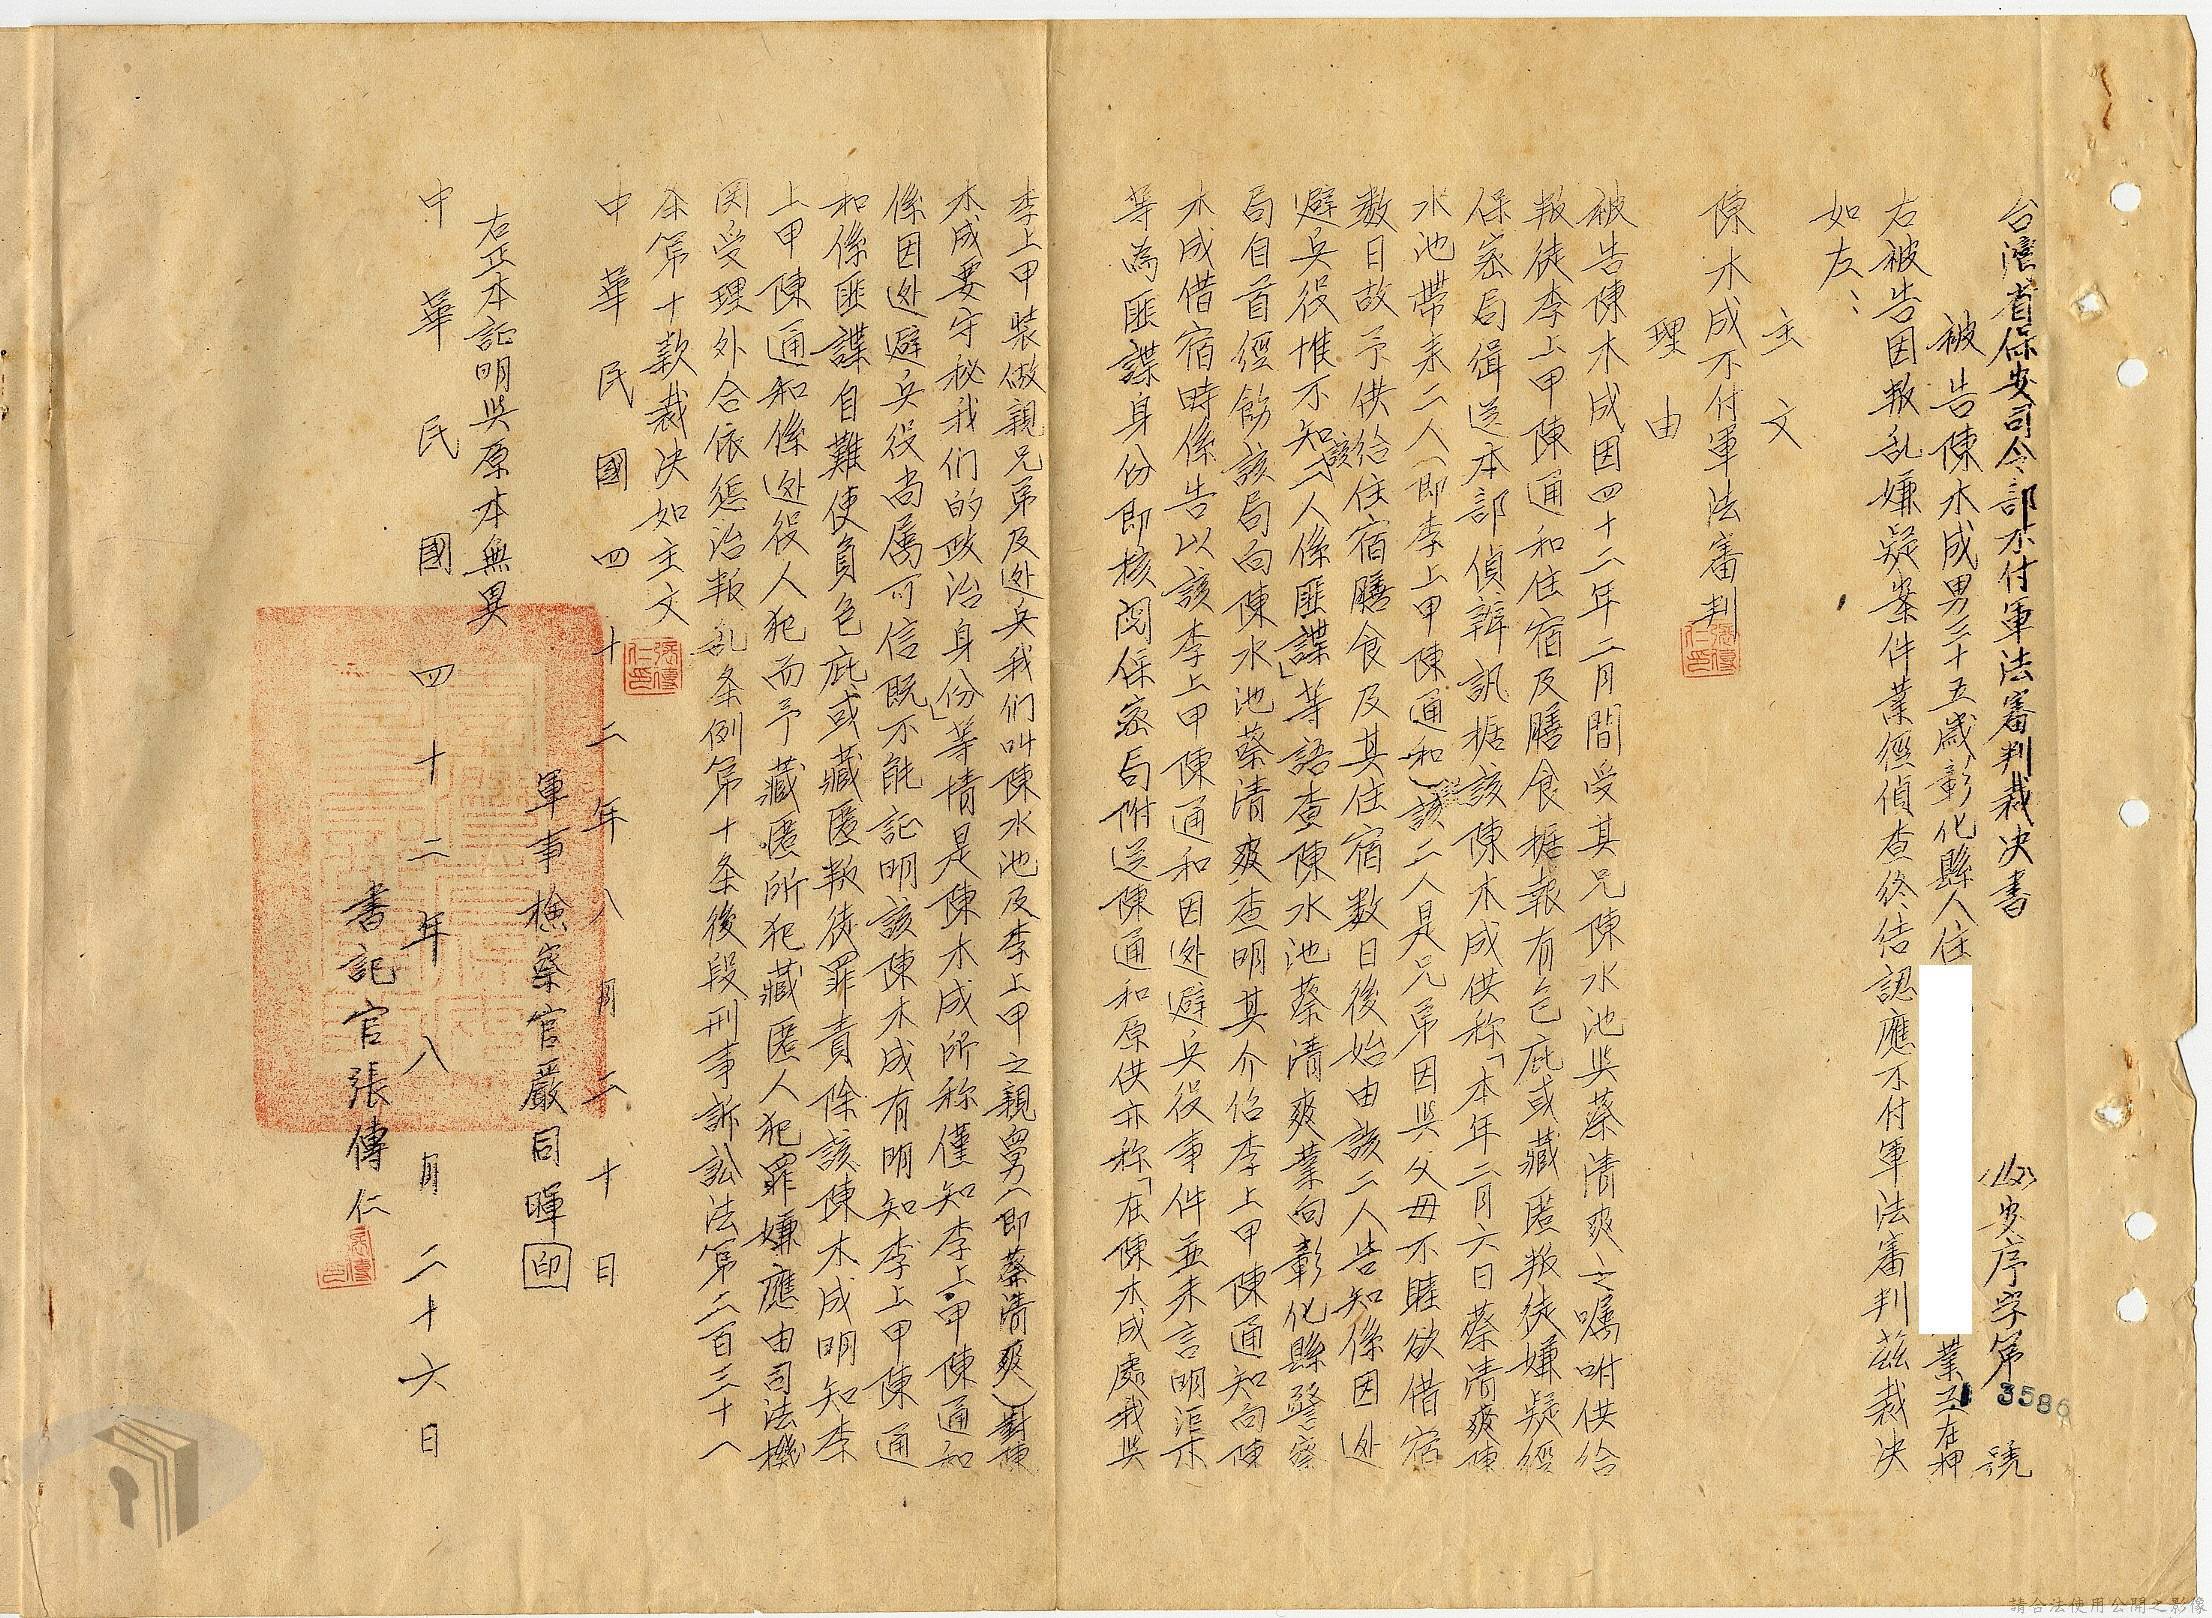 台灣省保安司令部不付軍法審判裁決書
(42)安序字第3586號
被告陳木成男三十五歲彰化縣人住
業 在押
右被告因叛乱嫌疑案件業經偵查終結認應不付軍法審判茲裁決
如左：
主文
陳木成不付軍法審判
理由
被告陳木成因四十二年二月間受其兄陳水池與蔡清爽之囑咐供給
叛徒李上甲陳通和住宿及膳食據報有包庇或藏匿叛徒嫌疑經
保密局緝送本部偵辦訊據該陳木成供称「本年二月六日蔡清爽陳
水池帶来二人（即李上甲陳通和）該二人是兄弟因與父母不睦欲借宿
数日故予供給住宿膳食及其住宿數日後始由該二人告知係因迯
避兵役惟不知該二人係匪諜」等語查陳水池蔡清爽業向彰化縣警察
局自首經飭該局向陳水池蔡清爽查明其介绍李上甲陳通知向陳
木成借宿時係告以該李上甲陳通和因迯避兵役事件並未言明渠
等為匪諜身份即核閱保密局附送陳通和原供亦称「在陳木成處我與
李上甲裝做親兄弟及迯兵我们叫陳水池及李上甲之親舅（即蔡清爽）對陳
木成要守秘我们的政治身份」等情是陳木成所称僅知李上甲陳通和
係因迯避兵役尚属可信既不能証明該陳木成有明知李上甲陳通
和係匪諜自難使負包庇或藏匿叛徒罪責除該陳木成明知李
上甲陳通和係迯役人犯而予藏匿所犯藏匿人犯罪嫌應由司法機
関受理外合依懲治叛乱条例第十条後段刑事訴訟法第二百三十八
条第十款裁决如主文
中華民國四十二年八月二十日
軍事檢察官嚴同暉印
右正本証明與原本無異
中華民國四十二年八月二十六日
書記官張傳仁
請合法使用公開之影像